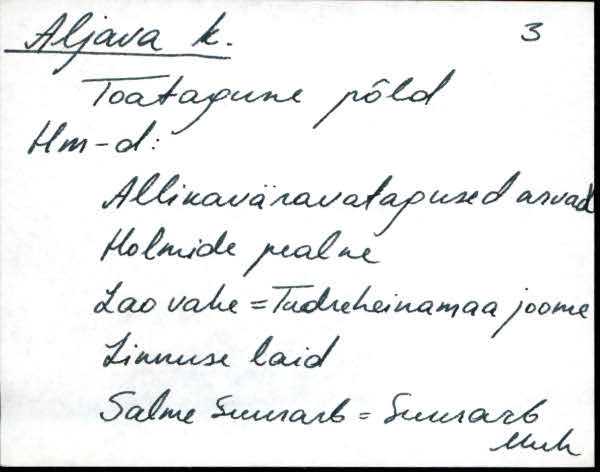 Aljava k. 3
Toatagune põld
Hm-d:
Allikaväravatagused arvad
Holmide pealne
Lao vahe = Tudreheinamaa joome
Linnuse laid
Salme Suurarb = Suurarb
Muh